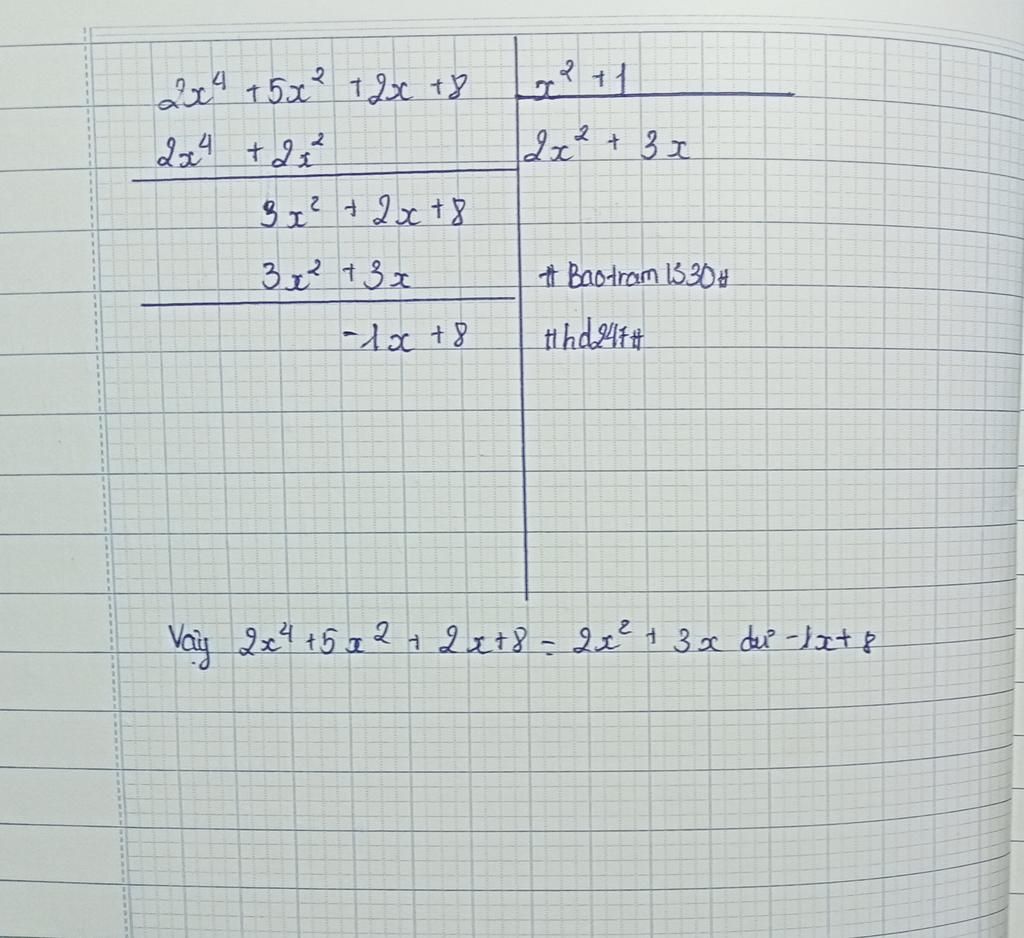 2x⁴ + 5x² + 2x + 8 x² + 1
2x⁴ + 2x² 2x² + 3x
3x² + 2x + 8
3x² + 3x # Baotram1530#
-1x + 8 #hd247#
Vậy 2x⁴ + 5x² + 2x + 8 = 2x² + 3x dư -1x + 8